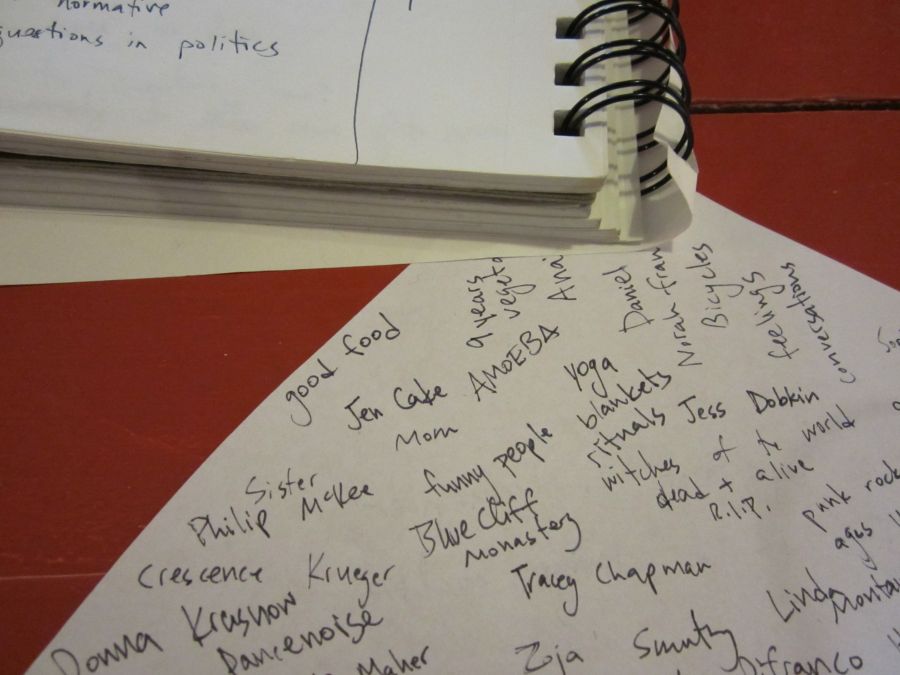 normative
questions in politics
9 years
Daniel
Bicycles
feelings
conversations
good food
Jen Cake
AMOEBA
yoga
Mom
blankets
Sister
funny people
rituals
Jess Dobkin
Philip McKee
witches of the world
Blue Cliff
dead + alive
monastery
R.I.P.
punk rock
Crescence Krueger
Tracey Chapman
Donna Krasnow
Linda
Dancenoise
Maher
Difranco